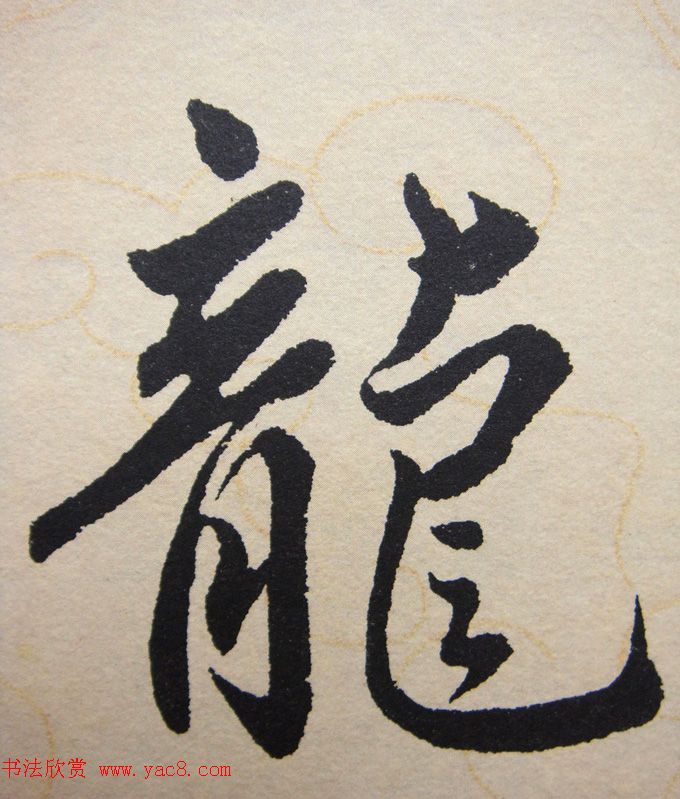 龍
书法欣赏 www.yac8.com